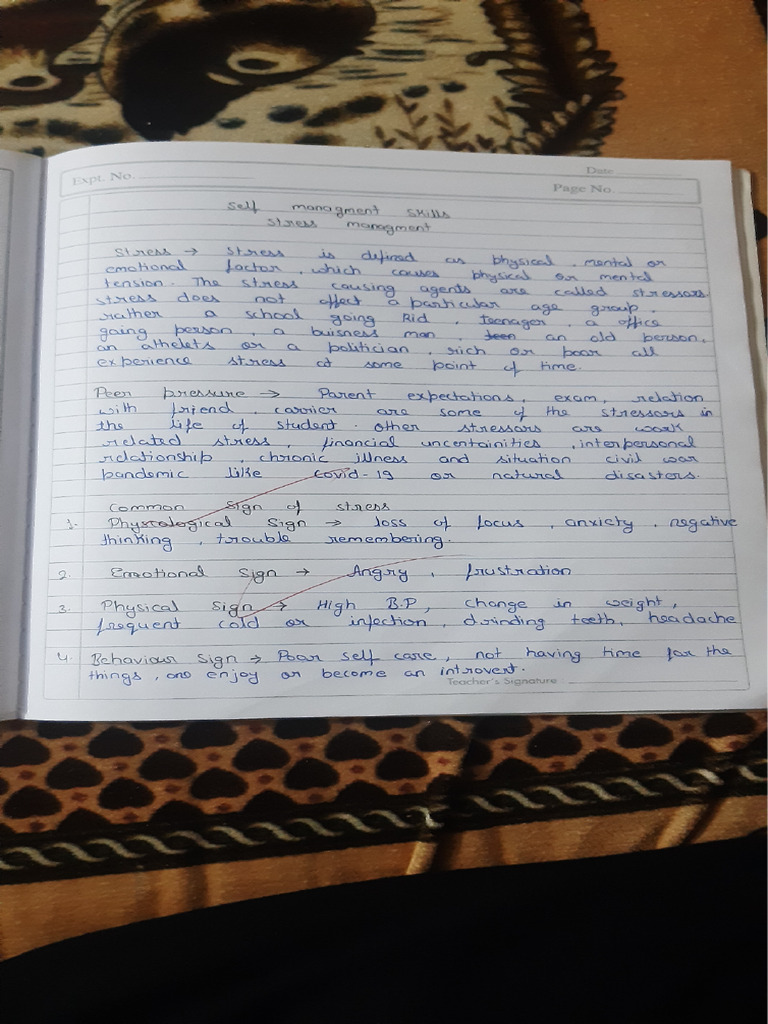 Expt. No.
Date
Page No.
Self managment skills
Stress managment
Stress → Stress is defined as physical, mental or
emotional factor, which causes physical or mental
tension. The stress causing agents are called stressors.
stress does not affect a particular age group,
rather a school going kid, teenager, a office
going person, a buisness man, an old person,
an athelets or a politician, rich or poor all
experience stress at some point of time.
Peer pressure → Parent expectations, exam, relation
with friend, carrier are some of the stressors in
the life of student. other stressors are work
related stress, financial uncentainities, interpersonal
relationship, chronic illness and situation civil war
pandemic like covid-19 or natural disasters.
Common sign of stress
1. Physcological Sign → loss of focus, anxiety, negative
thinking, trouble remembering.
2. Emotional sign → Angry, frustration
3. Physical sign → High B.P, change in weight,
frequent cold or infection, drinding teeth, headache
4. Behaviour sign → Poor self care, not having time for the
things, one enjoy or become an introvert.
Teacher's Signature